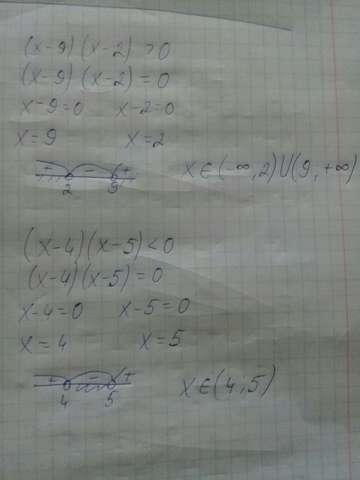 (x-9)(x-2)>0
(x-9)(x-2)=0
x-9=0 x-2=0
x=9 x=2
+ - +
2 9 x∈(-∞,2)∪(9,+∞)
(x-4)(x-5)<0
(x-4)(x-5)=0
x-4=0 x-5=0
x=4 x=5
+ - +
4 5 x∈(4;5)